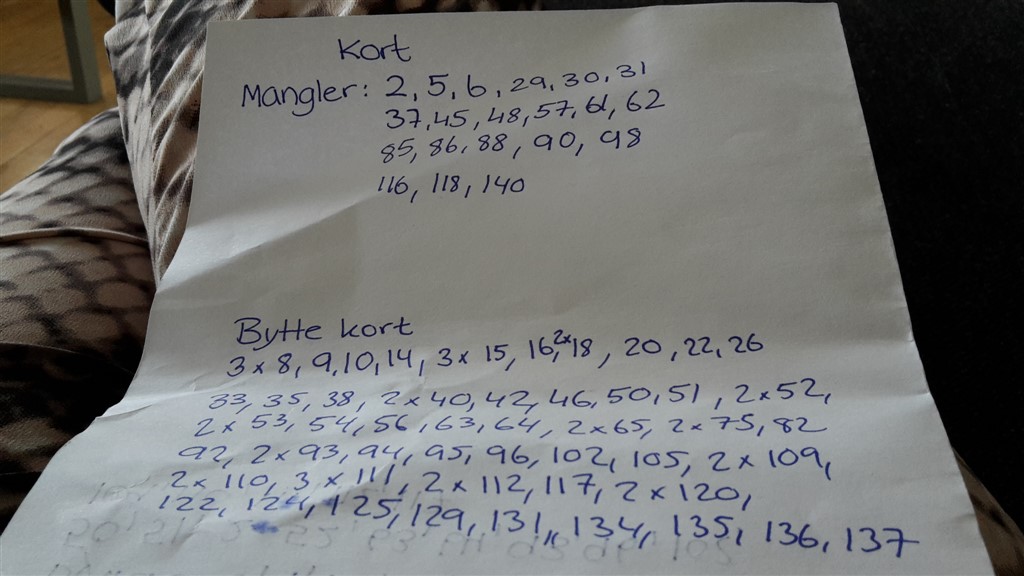 Kort
Mangler: 2, 5, 6, 29, 30, 31
37, 45, 48, 57, 61, 62
85, 86, 88, 90, 98
116, 118, 140
Bytte kort
3 x 8, 9, 10, 14, 3 x 15, 16, 2x 18, 20, 22, 26
33, 35, 38, 2 x 40, 42, 46, 50, 51, 2 x 52,
2 x 53, 54, 56, 63, 64, 2 x 65, 2 x 75, 82
92, 2 x 93, 94, 95, 96, 102, 105, 2 x 109,
2 x 110, 3 x 111, 2 x 112, 117, 2 x 120,
122, 124, 125, 129, 131, 134, 135, 136, 137